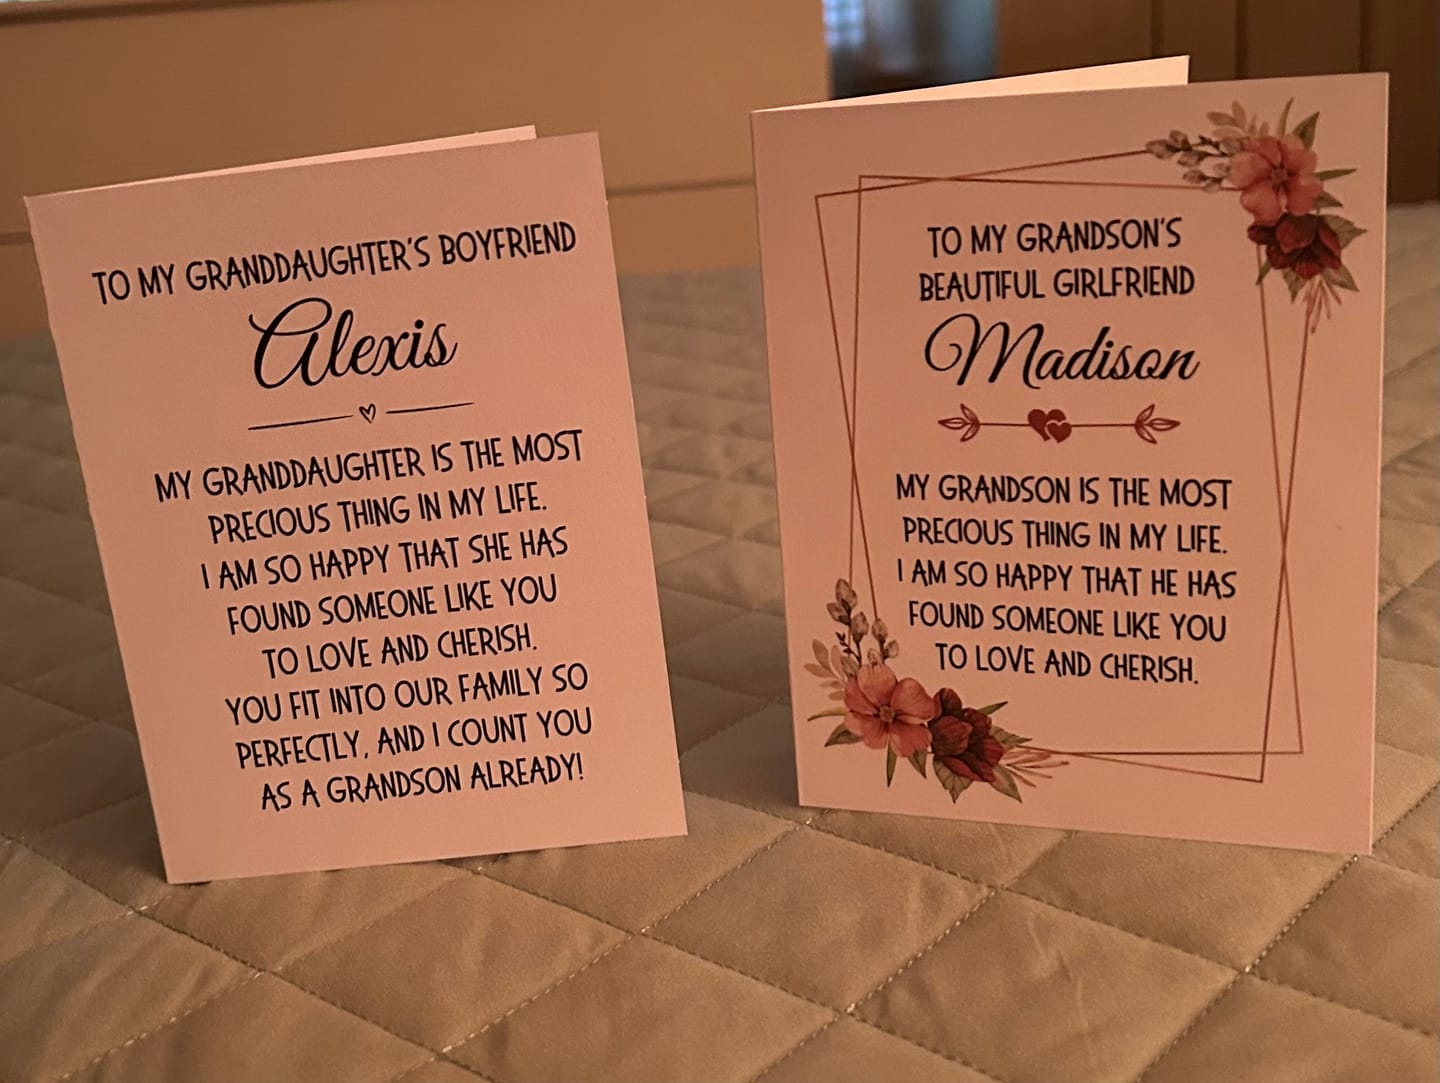 TO MY GRANDDAUGHTER'S BOYFRIEND
Alexis
MY GRANDDAUGHTER IS THE MOST
PRECIOUS THING IN MY LIFE.
I AM SO HAPPY THAT SHE HAS
FOUND SOMEONE LIKE YOU
TO LOVE AND CHERISH.
YOU FIT INTO OUR FAMILY SO
PERFECTLY, AND I COUNT YOU
AS A GRANDSON ALREADY!
TO MY GRANDSON'S
BEAUTIFUL GIRLFRIEND
Madison
MY GRANDSON IS THE MOST
PRECIOUS THING IN MY LIFE.
I AM SO HAPPY THAT HE HAS
FOUND SOMEONE LIKE YOU
TO LOVE AND CHERISH.